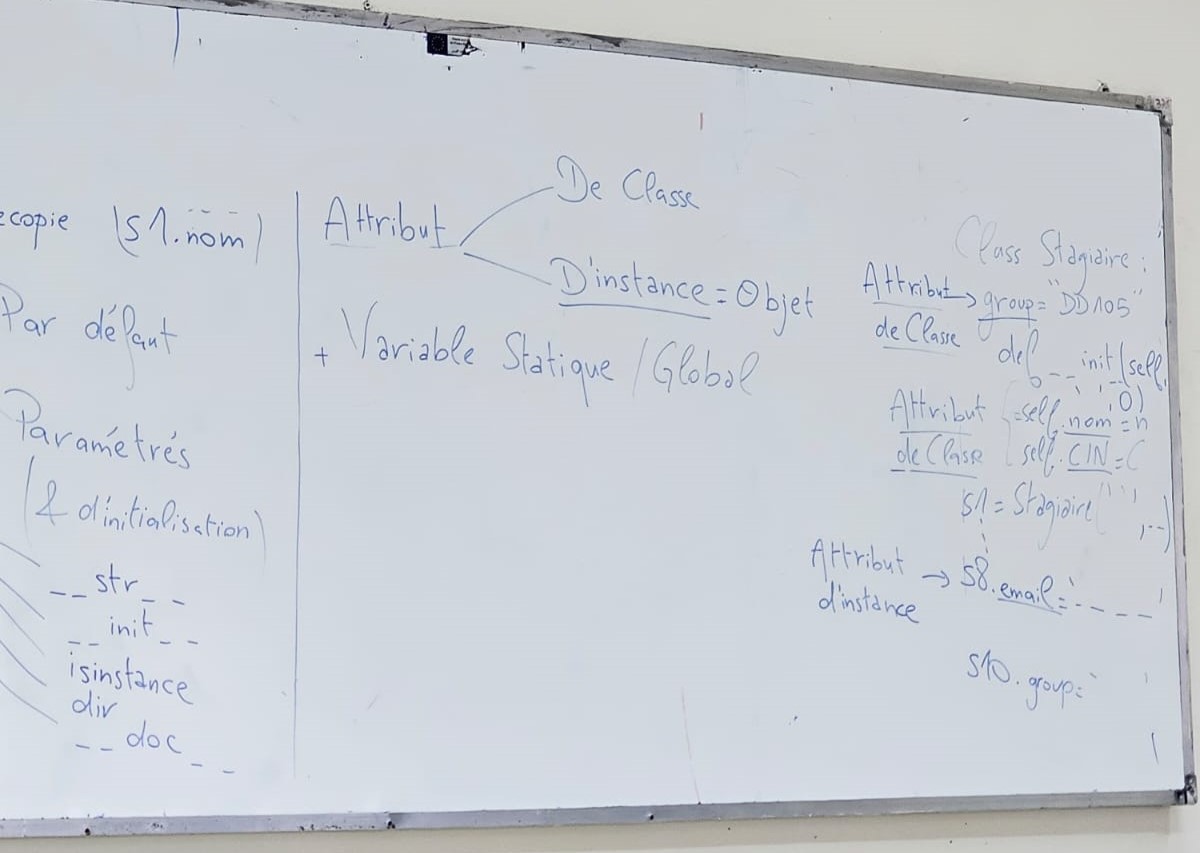 ecopie (s1.nom)
Par défaut
Paramétrés
(& d'initialisation)
__ str __
__ init __
isinstance
dir
__ doc __
Attribut
De Classe
D'instance = Objet
+ Variable Statique / Global
Class Stagiaire :
Attribut → group = "DD105"
de Classe
def __ init (self,
, , , 0)
Attribut
de Classe
self.nom = n
self.CIN = C
s1 = Stagiaire (''' , --)
Attribut → s8.email = '----'
d'instance
s10.group = '